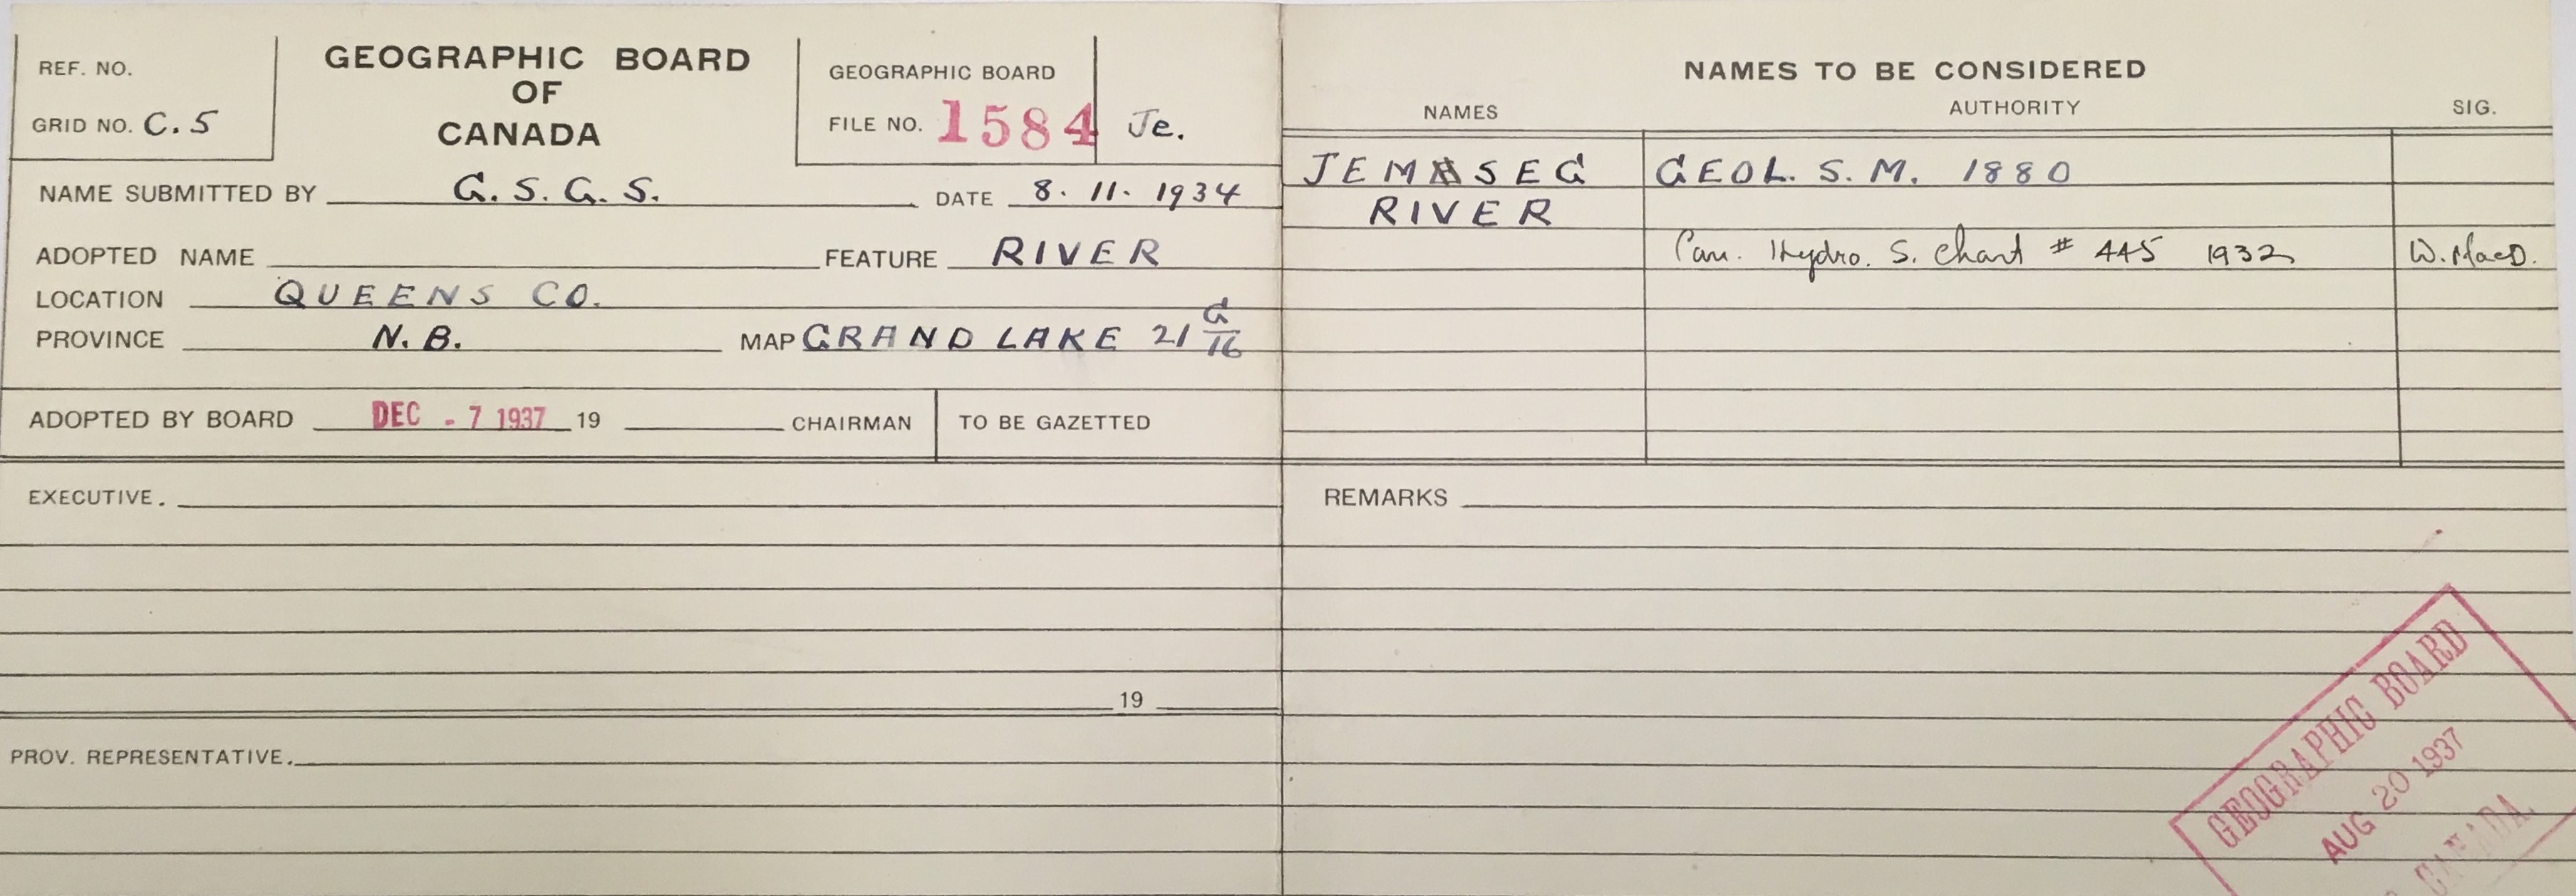 REF. NO.
GRID NO. C. 5
GEOGRAPHIC BOARD
OF
CANADA
GEOGRAPHIC BOARD
FILE NO. 1584 Je.
NAME SUBMITTED BY G. S. G. S. DATE 8. 11. 1934
ADOPTED NAME FEATURE RIVER
LOCATION QUEENS CO.
PROVINCE N. B. MAP GRAND LAKE 21 G/16
ADOPTED BY BOARD DEC - 7 1937 19 CHAIRMAN TO BE GAZETTED
EXECUTIVE.
19
PROV. REPRESENTATIVE.
NAMES TO BE CONSIDERED
NAMES AUTHORITY SIG.
JEMSEG GEOL. S. M. 1880
RIVER
Can. Hydro. S. Chart # 445 1932 W. MacD.
REMARKS
GEOGRAPHIC BOARD
AUG 20 1937
CANADA.